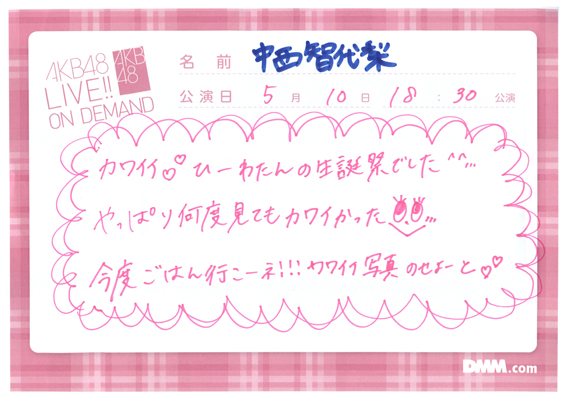 AKB48
LIVE!!
ON DEMAND
AKB
48
名前 中西智代梨
公演日 5月10日 18:30公演
カワイイ♡♡ひーわたんの生誕祭でした^^...
やっぱり何度見てもカワイかった...
今度ごはん行こーネ!!!カワイイ写真のせよーと♡♡
DMM.com